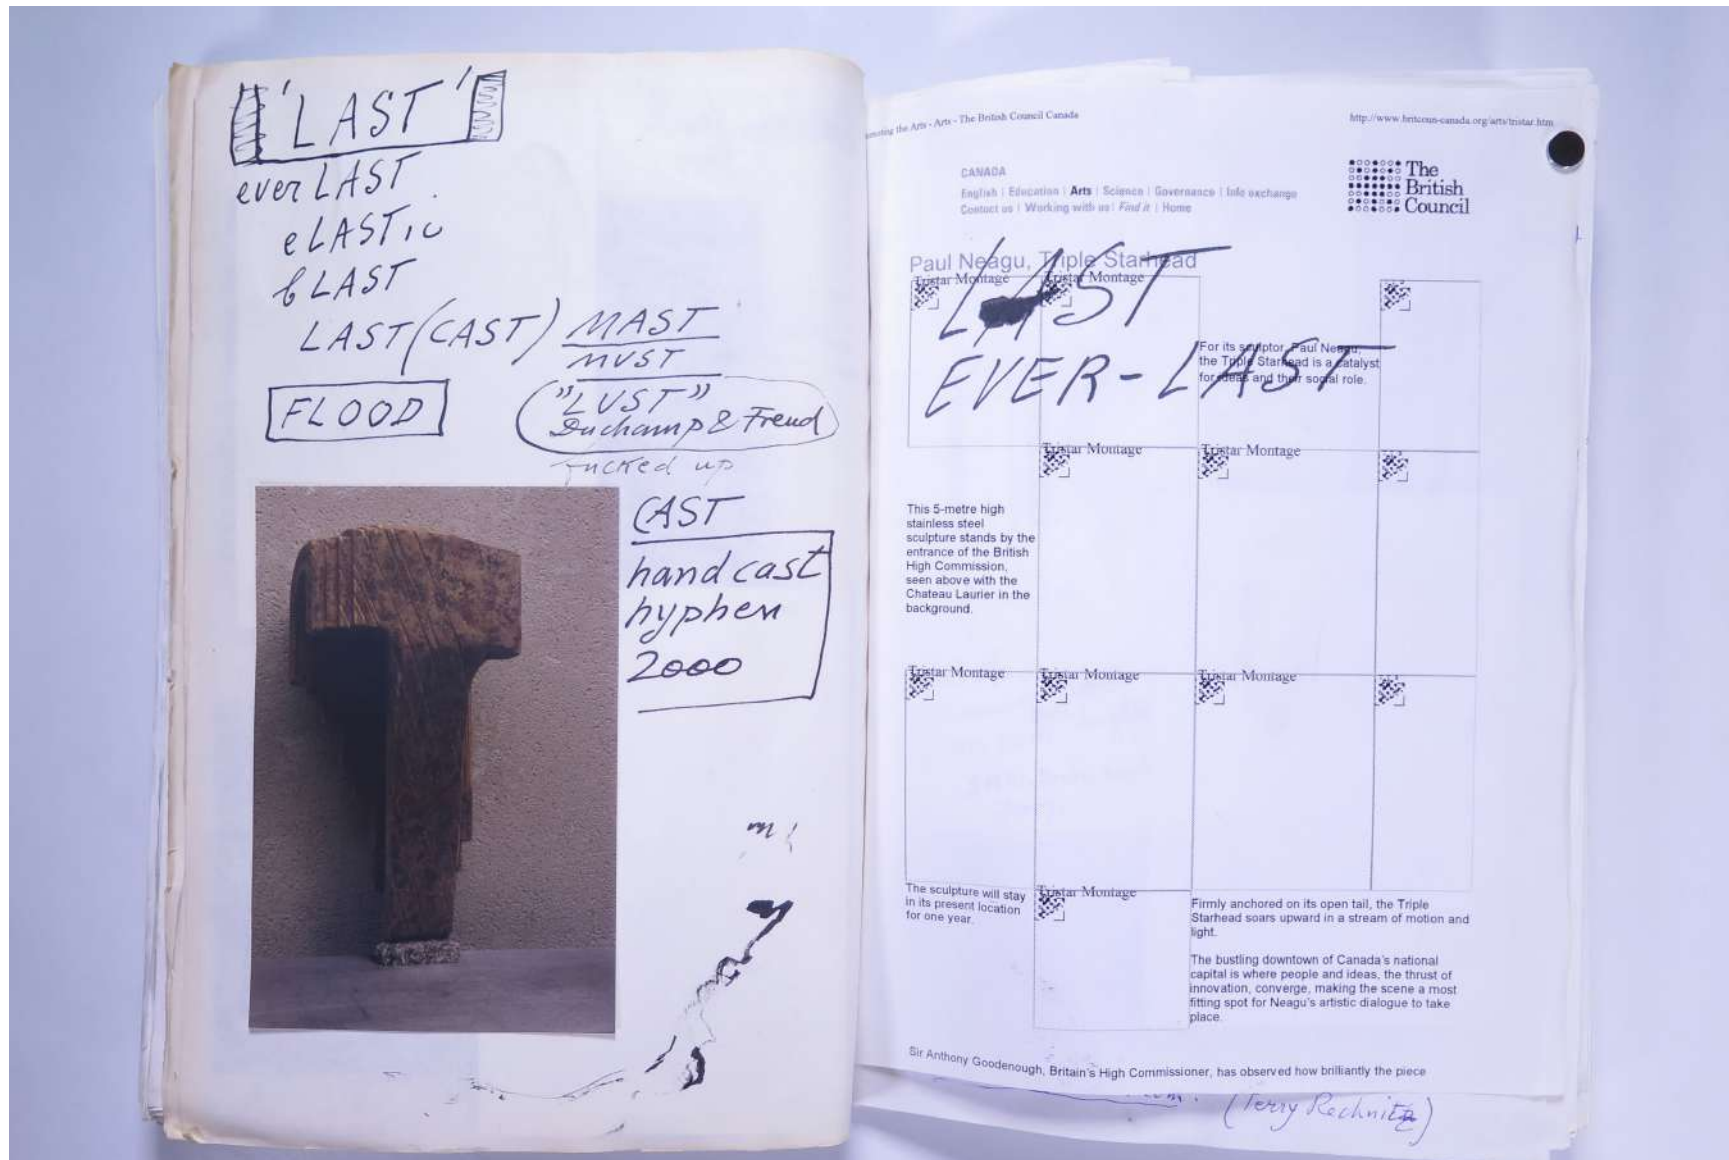 'LAST'
everLAST
eLASTic
bLAST
LAST(CAST) MAST
MUST
"LUST"
Duchamp & Freud
fucked up
FLOOD
CAST
hand cast
hyphen
2000
the Arts - Arts - The British Council Canada
http://www.britcoun-canada.org/arts/tristar.htm
CANADA
English | Education | Arts | Science | Governance | Info exchange
Contact us | Working with us | Find it | Home
The
British
Council
Paul Neagu, Triple Starhead
Tristar Montage
Tristar Montage
LAST
EVER-LAST
For its sculptor, Paul Neagu,
the Triple Starhead is a catalyst
for ideas and their social role.
Tristar Montage
Tristar Montage
This 5-metre high
stainless steel
sculpture stands by the
entrance of the British
High Commission,
seen above with the
Chateau Laurier in the
background.
Tristar Montage
Tristar Montage
Tristar Montage
The sculpture will stay
in its present location
for one year.
Tristar Montage
Firmly anchored on its open tail, the Triple
Starhead soars upward in a stream of motion and
light.
The bustling downtown of Canada's national
capital is where people and ideas, the thrust of
innovation, converge, making the scene a most
fitting spot for Neagu's artistic dialogue to take
place.
Sir Anthony Goodenough, Britain's High Commissioner, has observed how brilliantly the piece
(Terry Rechnitz)